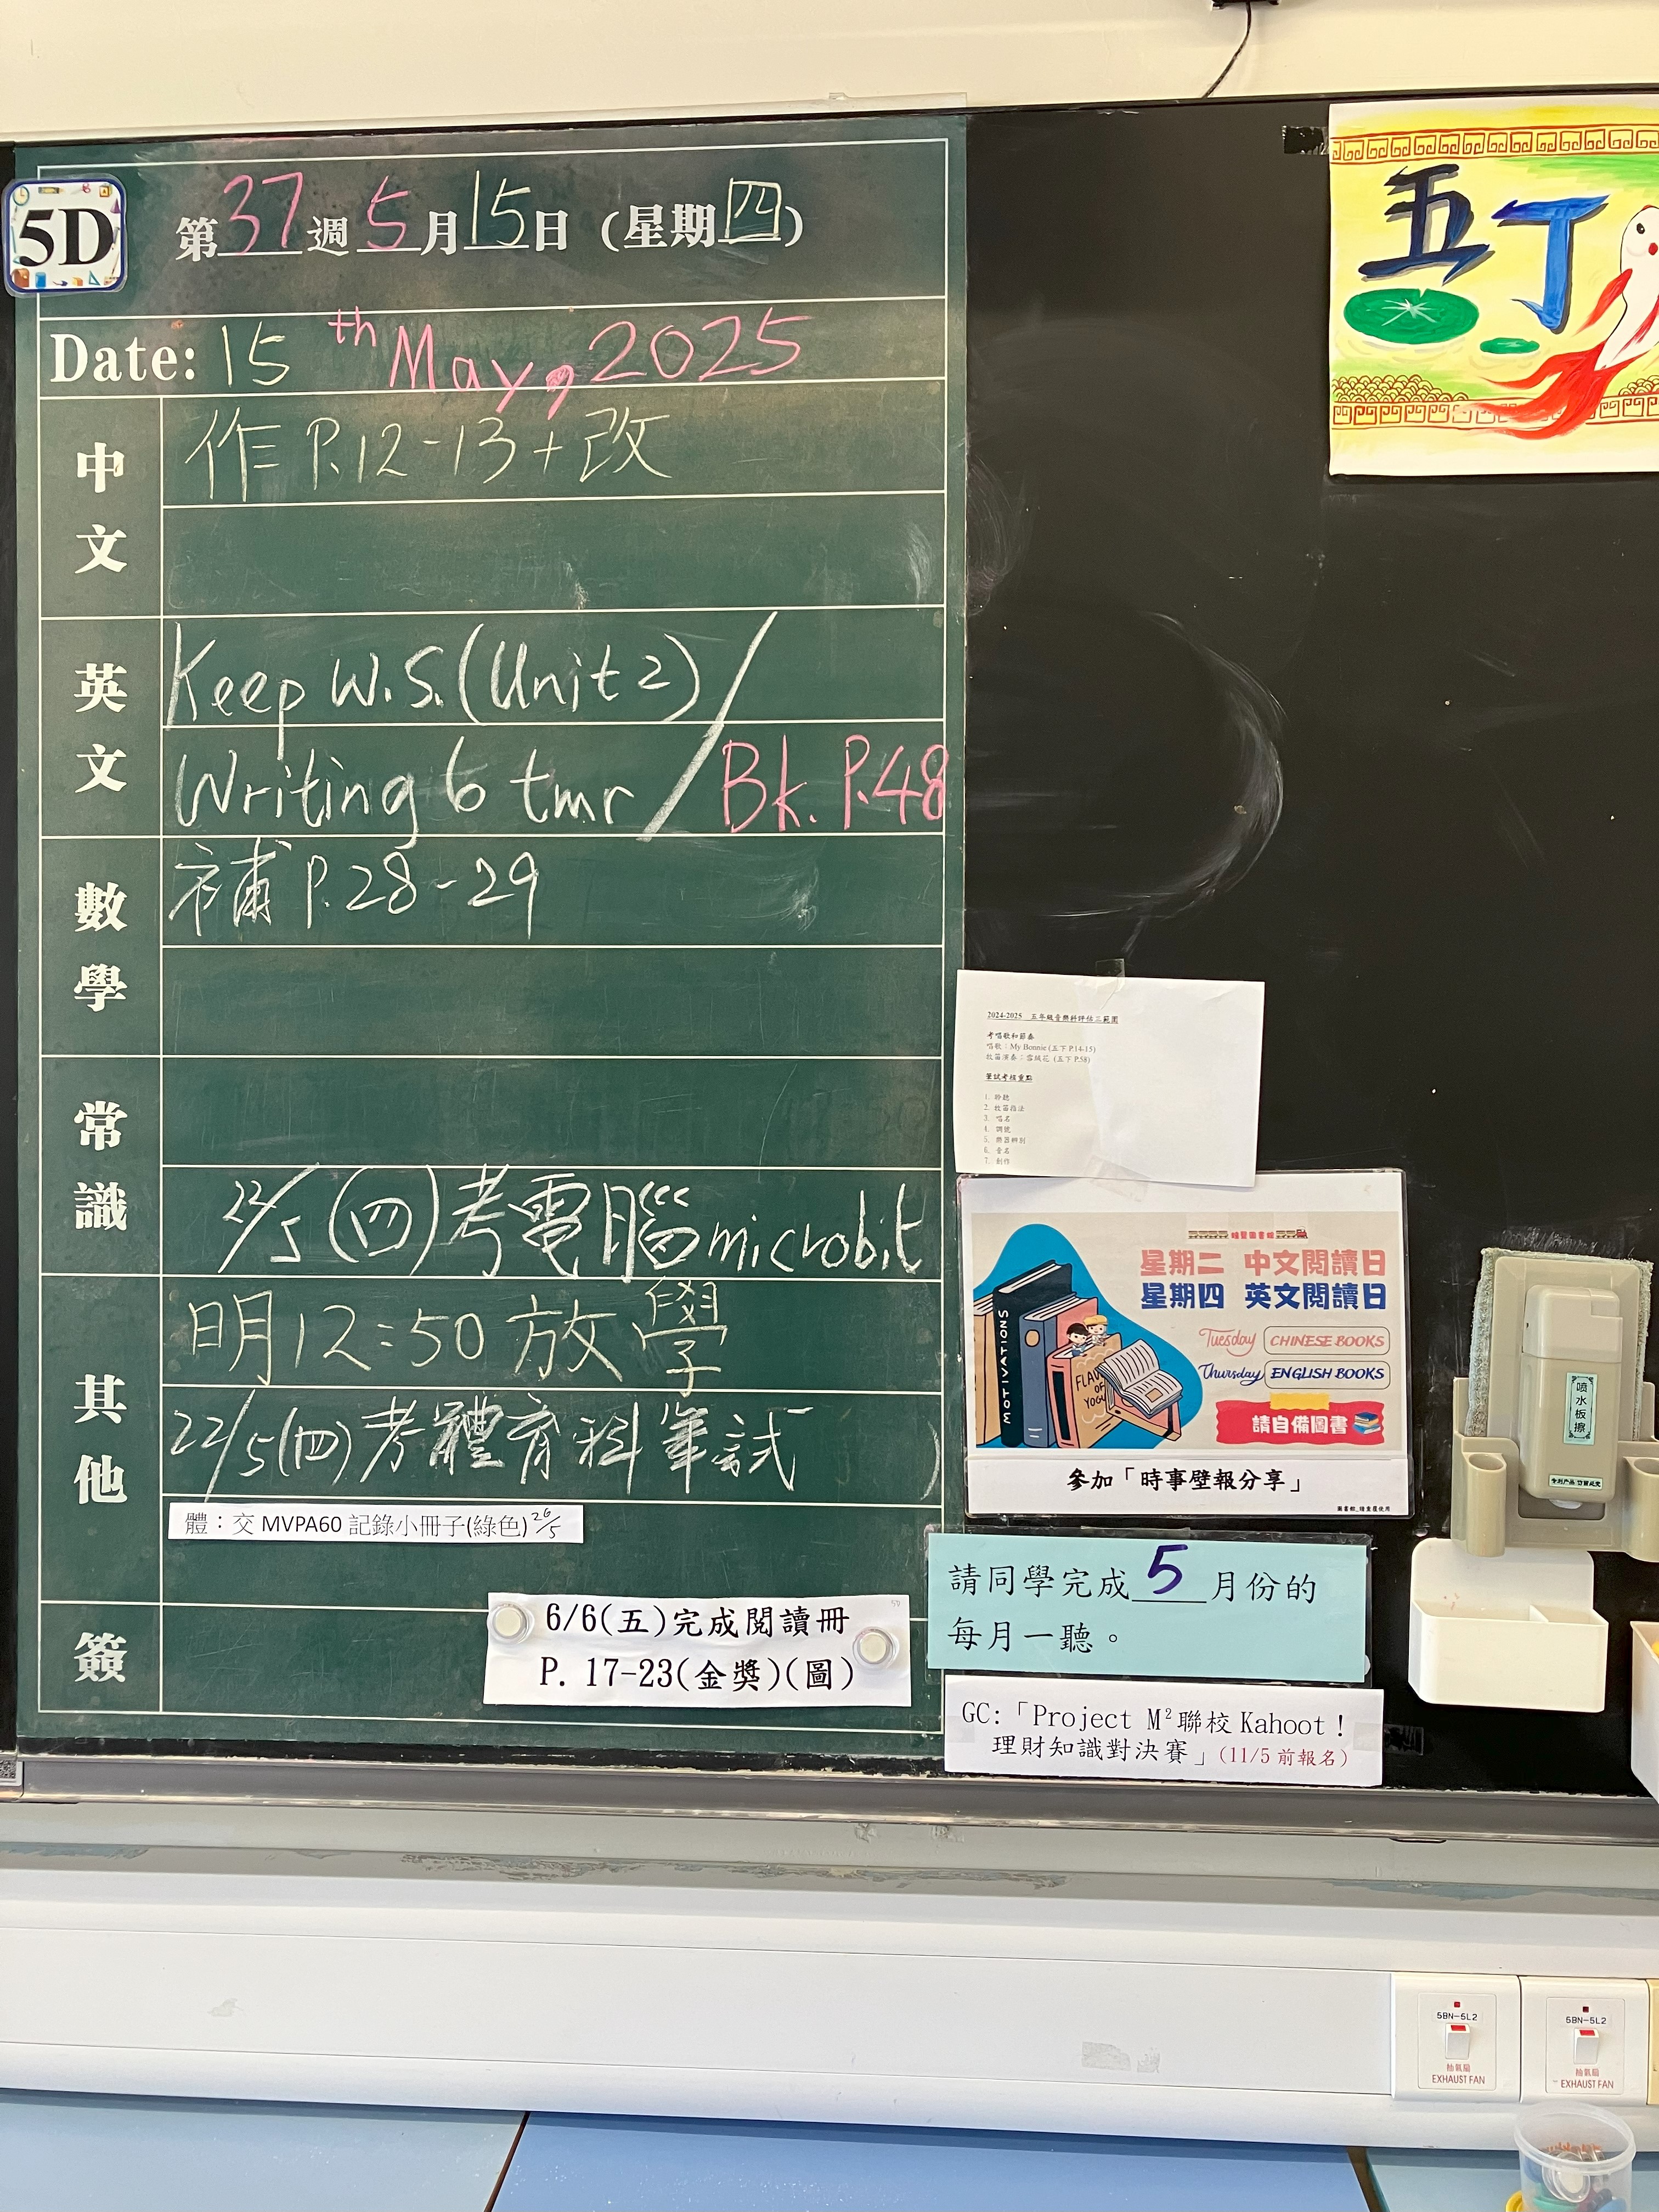 5D
第37週5月15日(星期四)
Date: 15th May, 2025
中文
作P.12-13+改
英文
Keep W.S.(Unit 2)/
Writing 6 tmr/Bk. P.48
數學
補P.28-29
常識
22/5(四)考電腦microbit
其他
明12:50放學
22/5(四)考體育科筆試
體:交 MVPA60 記錄小冊子(綠色)26/5
簽
6/6(五)完成閱讀冊
P. 17-23(金獎)(圖)
五丁
2024-2025 五年級音樂科評估三範圍
考唱歌和節奏
唱歌:My Bonnie (五下 P.14-15)
牧笛演奏:雪絨花 (五下 P.58)
筆試考核重點
1. 聆聽
2. 牧笛指法
3. 唱名
4. 調號
5. 樂器辨別
6. 音名
7. 創作
星期二 中文閱讀日
星期四 英文閱讀日
Tuesday CHINESE BOOKS
Thursday ENGLISH BOOKS
請自備圖書
MOTIVATIONS
參加「時事壁報分享」
請同學完成5月份的
每月一聽。
GC:「Project M²聯校 Kahoot!
理財知識對決賽」(11/5 前報名)
喷水板擦
5BN-5L2
抽氣扇
EXHAUST FAN
5BN-5L2
抽氣扇
EXHAUST FAN